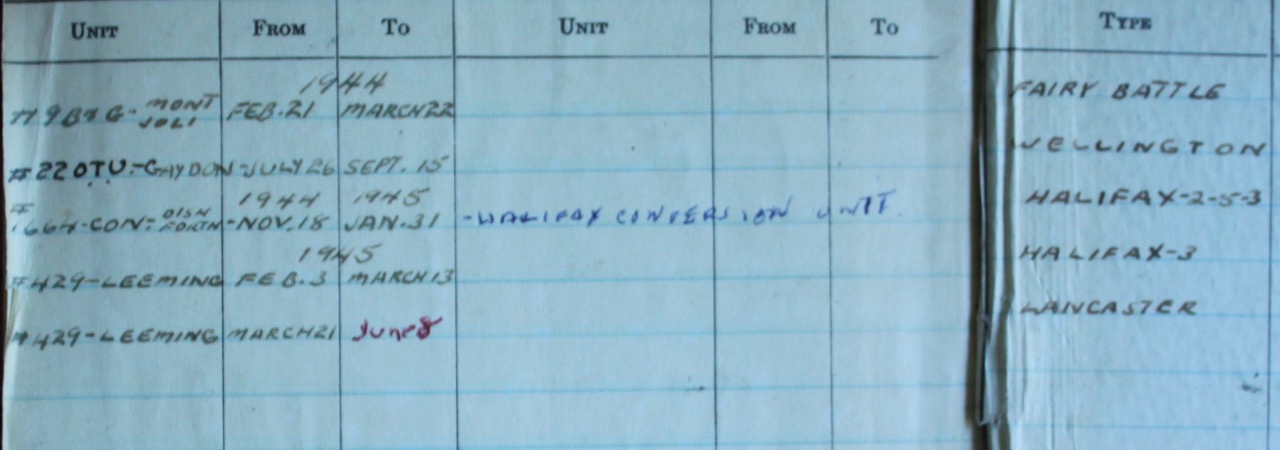 UNIT FROM TO UNIT FROM TO TYPE
1944
#9 B&G- MONT JOLI FEB.21 MARCH22 FAIRY BATTLE
#22 OTU.-GAYDON-JULY 26 SEPT. 15 WELLINGTON
1944 1945
#664-CON- DISH FORTH -NOV.18 JAN.31 -HALIFAX CONVERSION UNIT HALIFAX-2-5-3
1945
#429-LEEMING FEB.3 MARCH13 HALIFAX-3
#429-LEEMING MARCH21 June 8 LANCASTER